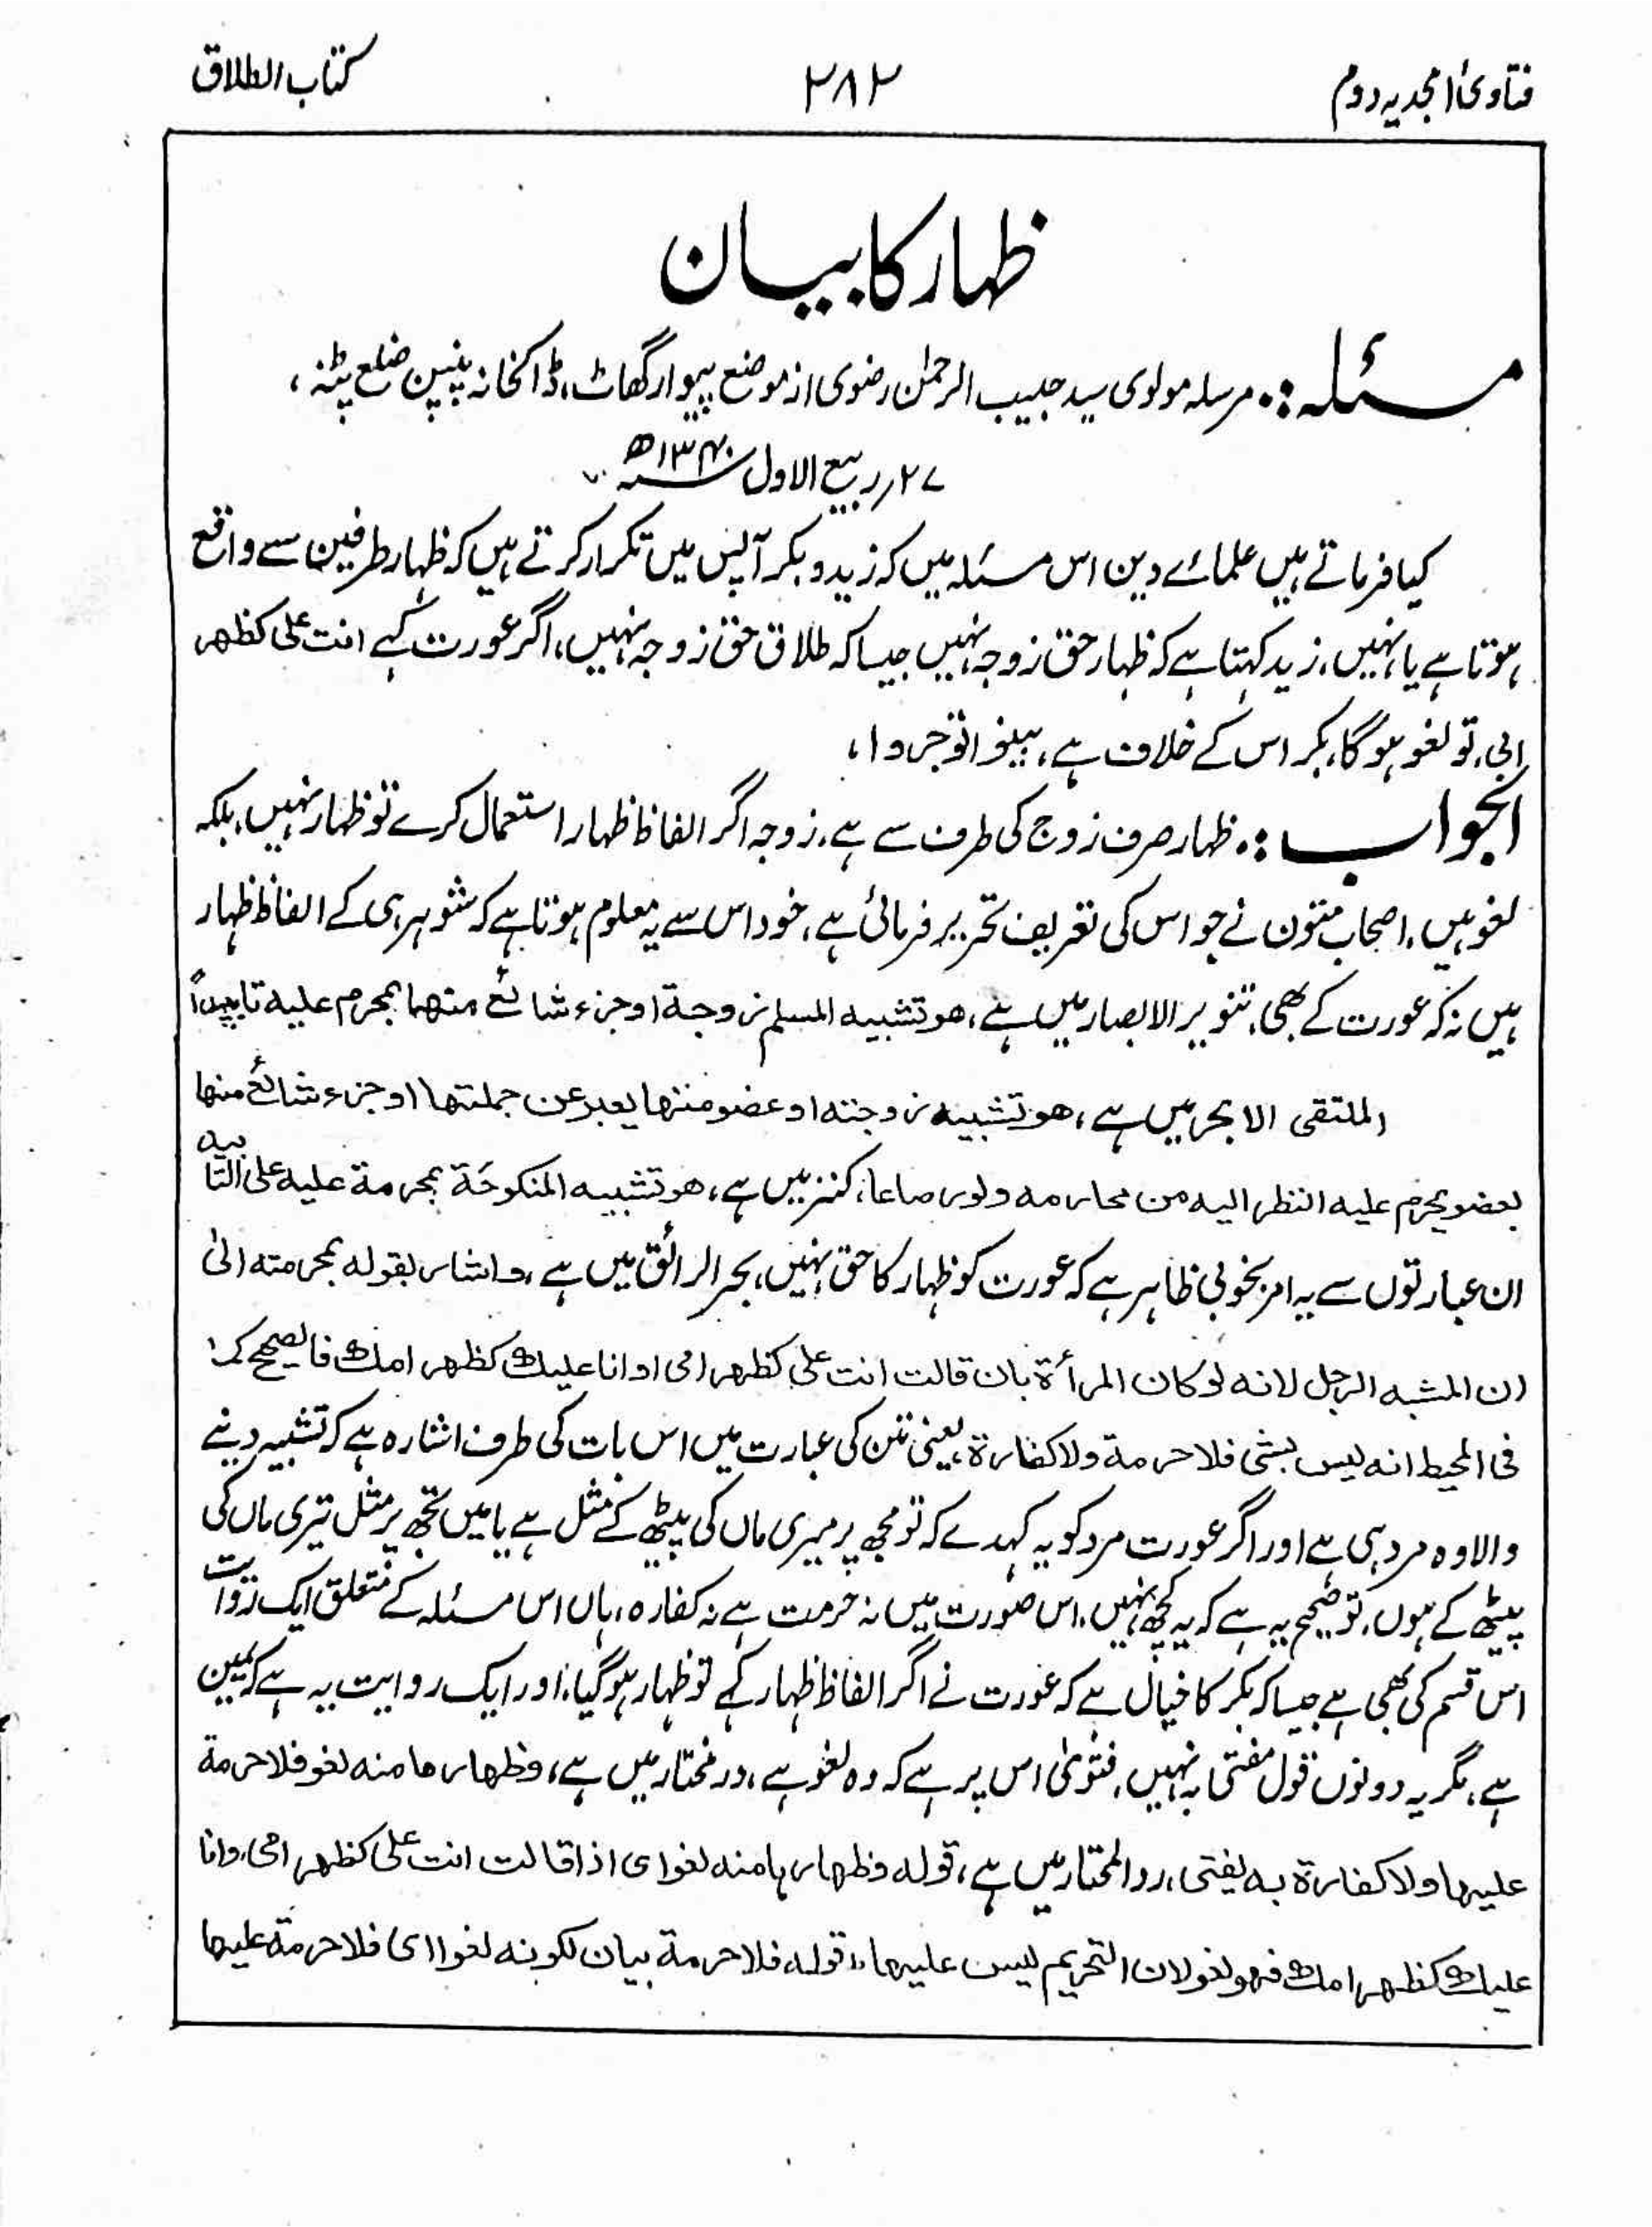 فتاویٰ امجدیہ دوم ۲۸۲ کتاب الطلاق
ظہار کا بیان
مسئلہ:۔ مرسلہ مولوی سید حبیب الرحمٰن رضوی از موضع بیوار گھاٹ، ڈاکخانہ پنپن ضلع پٹنہ،
۲۷؍ ربیع الاول ۱۳۴۰ھ
کیا فرماتے ہیں علمائے دین اس مسئلہ میں کہ زید و بکر آپس میں تکرار کرتے ہیں کہ ظہار طرفین سے واقع
ہوتا ہے یا نہیں، زید کہتا ہے کہ ظہار حق زوجہ نہیں جیسا کہ طلاق حق زوجہ نہیں، اگر عورت کہے انت علی کظہر
ابی، تو لغو ہوگا، بکر اس کے خلاف ہے، بینوا توجروا،
الجواب:۔ ظہار صرف زوج کی طرف سے ہے، زوجہ اگر الفاظ ظہار استعمال کرے تو ظہار نہیں، بلکہ
لغو ہیں، اصحاب متون نے جو اس کی تعریف تحریر فرمائی ہے، خود اس سے یہ معلوم ہوتا ہے کہ شوہر ہی کے الفاظ ظہار
ہیں نہ کہ عورت کے بھی، تنویر الابصار میں ہے، ھو تشبیہ المسلم زوجۃ او جزء شائع منھا بمحرم علیہ تابیداً
الملتقی الابحر میں ہے، ھو تشبیہ زوجتہ او عضو منھا یعبر عن جملتھا او جزء شائع منھا
بعضو یحرم علیہ النظر الیہ من محارمہ ولو رضاعا، کنز میں ہے، ھو تشبیہ المنکوحۃ بمحرمۃ علیہ علی التابید
ان عبارتوں سے یہ امر بخوبی ظاہر ہے کہ عورت کو ظہار کا حق نہیں، بحر الرائق میں ہے، واشار بقولہ بمحرمتہ الیٰ
ان المشبہ الرجل لانہ لو کان المرأۃ بان قالت انت علی کظھر امی او انا علیک کظھر امک فالصحیح کما
فی المحیط انہ لیس بشئ فلا حرمۃ ولا کفارۃ، یعنی متن کی عبارت میں اس بات کی طرف اشارہ ہے کہ تشبیہ دینے
والا وہ مرد ہی ہے اور اگر عورت مرد کو یہ کہدے کہ تو مجھ پر میری ماں کی پیٹھ کے مثل ہے یا میں تجھ پر مثل تیری ماں کی
پیٹھ کے ہوں، تو صحیح یہ ہے کہ یہ کچھ نہیں، اس صورت میں نہ حرمت ہے نہ کفارہ، ہاں اس مسئلہ کے متعلق ایک روایت
اس قسم کی بھی ہے جیسا کہ بکر کا خیال ہے کہ عورت نے اگر الفاظ ظہار کہے تو ظہار ہو گیا، اور ایک روایت یہ ہے کہ یمین
ہے، مگر یہ دونوں قول مفتی بہ نہیں، فتویٰ اس پر ہے کہ وہ لغو ہے، در مختار میں ہے، وظھارھا منہ لغو فلا حرمۃ
علیھا ولا کفارۃ بہ یفتی، رد المحتار میں ہے، قولہ وظھارہا منہ لغو ای اذا قالت انت علی کظھر امی، وانا
علیک کظھر امک فھو لغو لان التحریم لیس علیھا، قولہ فلا حرمۃ بیان لکونہ لغوا ای فلا حرمۃ علیھا